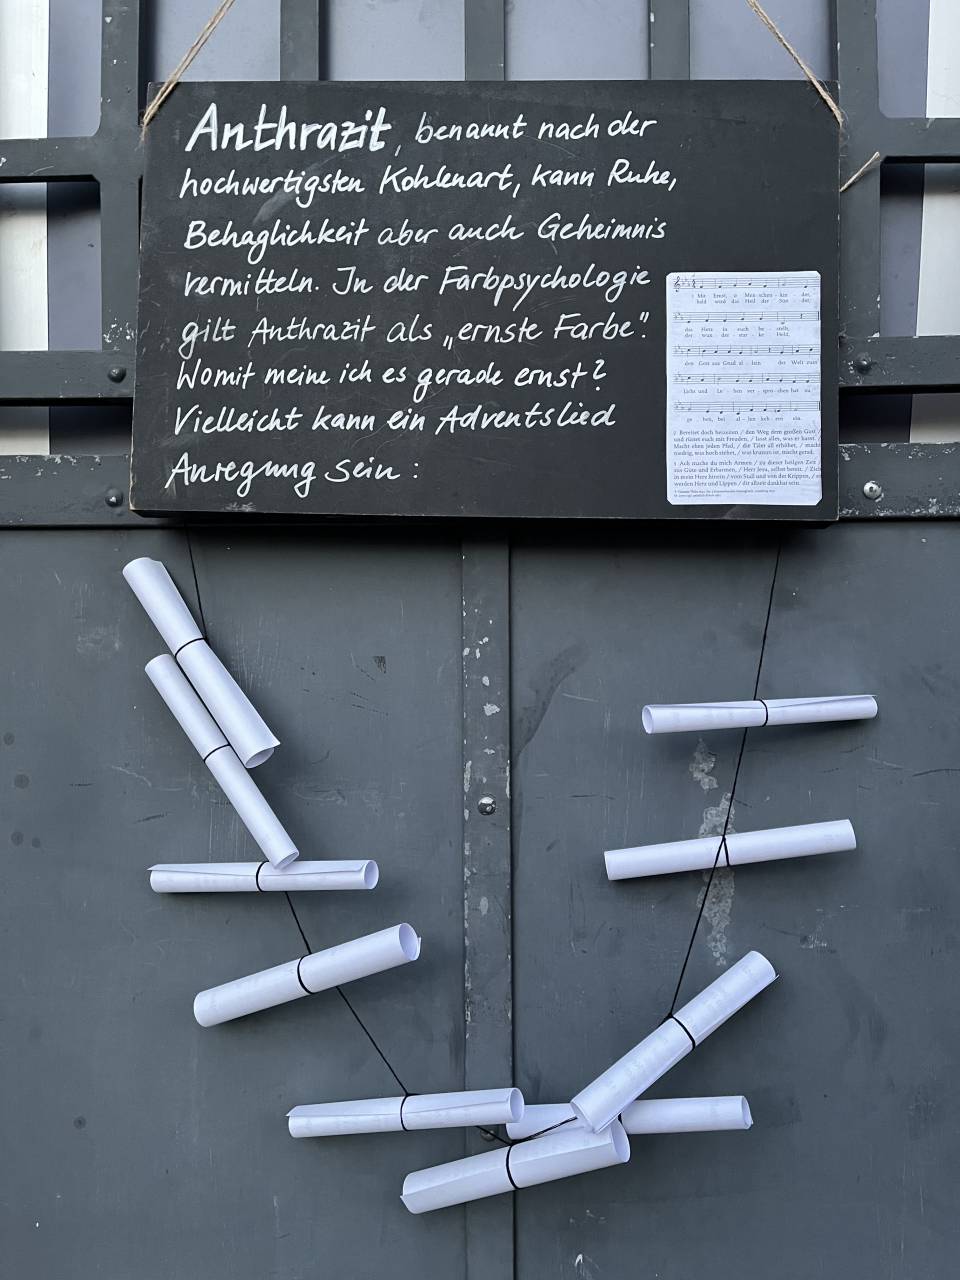 Anthrazit, benannt nach der
hochwertigsten Kohlenart, kann Ruhe,
Behaglichkeit aber auch Geheimnis
vermitteln. In der Farbpsychologie
gilt Anthrazit als „ernste Farbe“.
Womit meine ich es gerade ernst?
Vielleicht kann ein Adventslied
Anregung sein:
1 Mit Ernst, o Men - schen - kin - der,
bald wird das Heil der Sün - der,
das Herz in euch be - stellt,
der wun - der - star - ke Held,
den Gott aus Gnad al - lein der Welt zum
Licht und Le - ben ver - spro - chen hat zu
ge - ben, bei al - len keh - ren ein.
2 Bereitet doch beizeiten / den Weg dem großen Gast /
und rüstet euch mit Freuden, / lasst alles, was er hasst. /
Macht eben jeden Pfad, / die Täler all erhöhet, / macht
niedrig, was hoch stehet, / was krumm ist, macht gerad.
3 Ach mache du mich Armen / zu dieser heilgen Zeit /
aus Güte und Erbarmen, / Herr Jesu, selbst bereit. / Zieh
in mein Herz hinein / vom Stall und von der Krippen, / so
werden Herz und Lippen / dir allzeit dankbar sein.